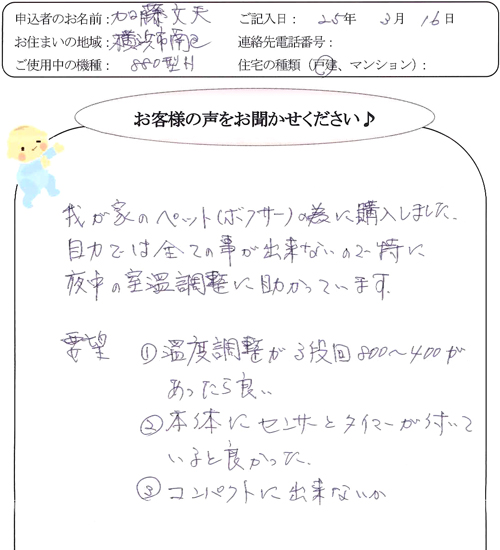 申込者のお名前：加藤文夫 ご記入日：25年 3月 16日
お住まいの地域：横浜市南区 連絡先電話番号：
ご使用中の機種：880型H 住宅の種類（戸建、マンション）：
お客様の声をお聞かせください♪
我が家のペット(ボクサー)の為に購入しました。
自力では全ての事が出来ないので特に
夜中の室温調整に助かっています。
要望 ①温度調整が3段回800〜400が
あったら良い
②本体にセンサーとタイマーが付いて
いると良かった。
③コンパクトに出来ないか